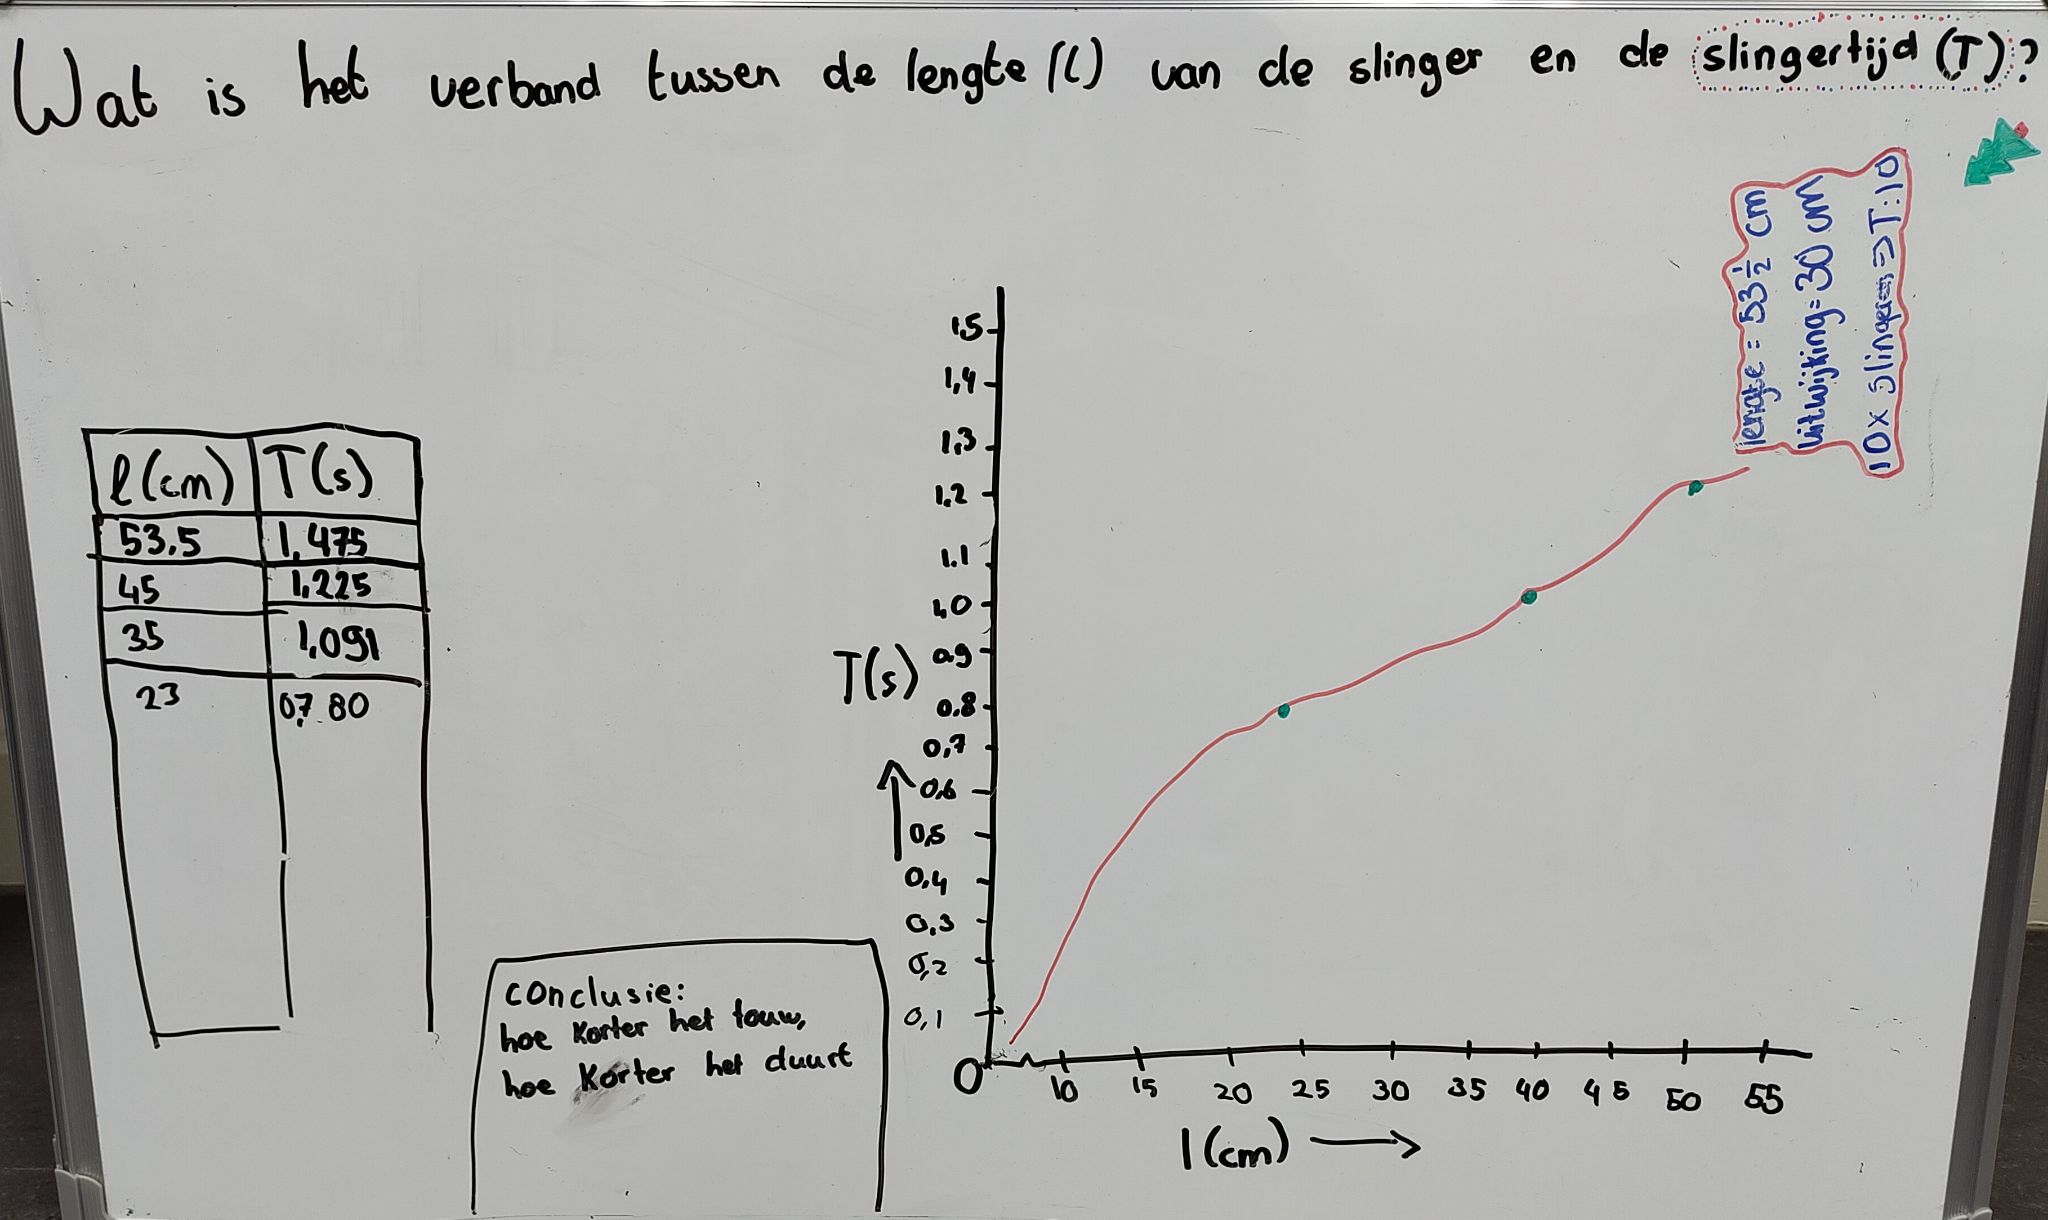 Wat is het verband tussen de lengte (l) van de slinger en de slingertijd (T)?
lengte = 53 ½ cm
uitwijking = 30 cm
10 x slingeren => T:10
l (cm) T (s)
53,5 1,475
45 1,225
35 1,091
23 07,80
conclusie:
hoe korter het touw,
hoe korter het duurt
T(s)
1,5
1,4
1,3
1,2
1,1
1,0
0,9
0,8
0,7
0,6
0,5
0,4
0,3
0,2
0,1
0
10 15 20 25 30 35 40 45 50 55
l (cm) →